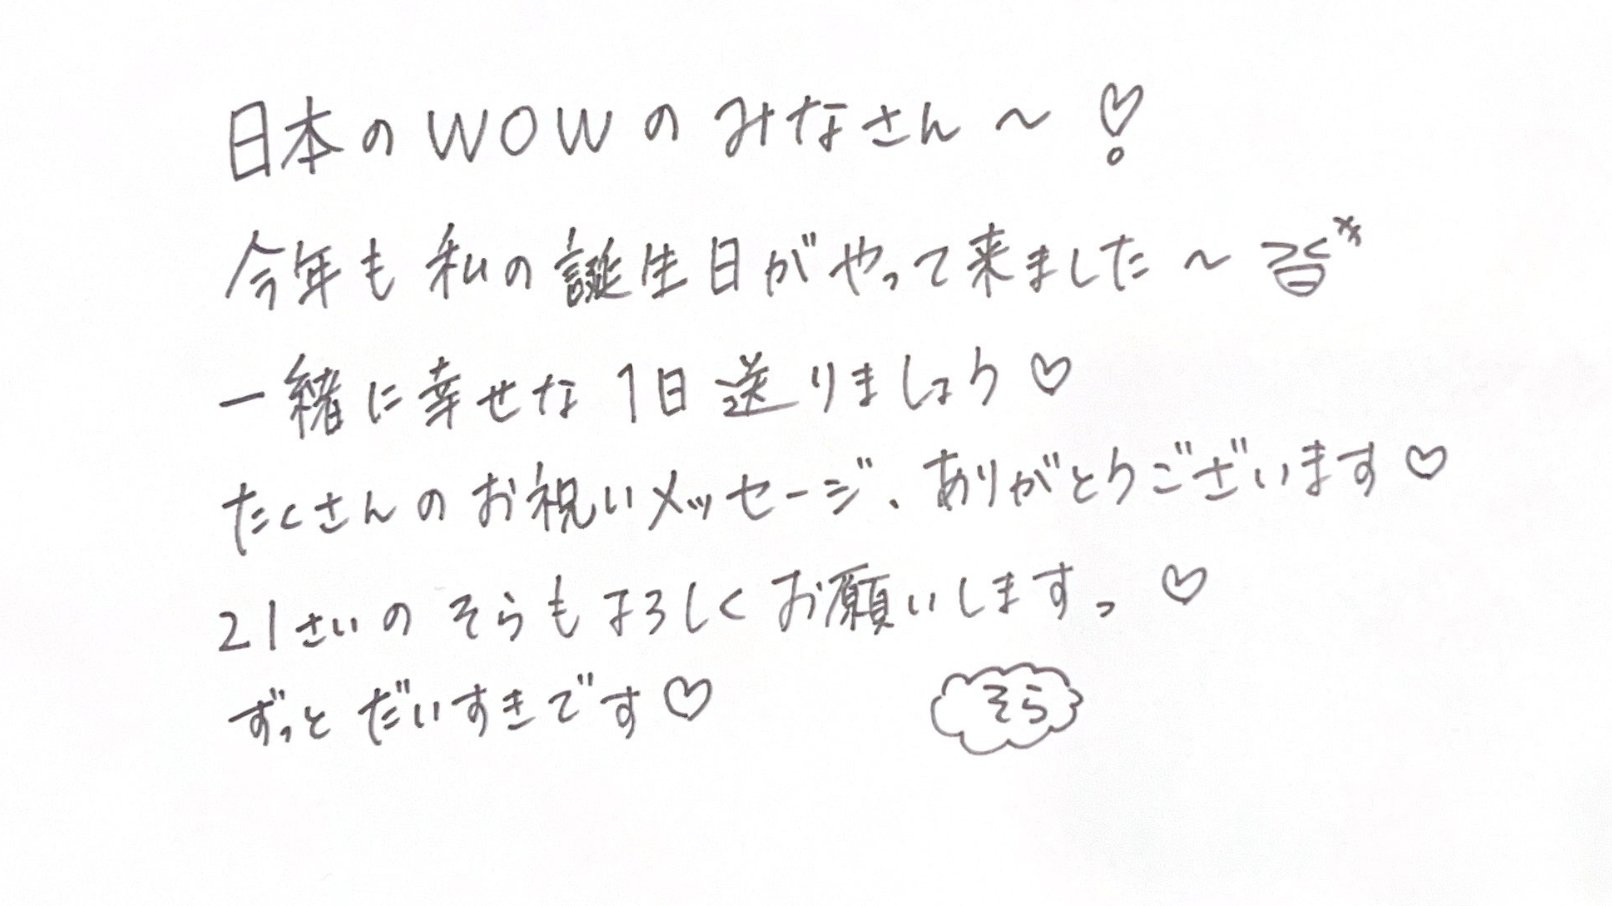 日本のWOWのみなさん～♡
今年も私の誕生日がやって来ました～
一緒に幸せな1日送りましょう♡
たくさんのお祝いメッセージ、ありがとうございます♡
21さいのそらもよろしくお願いしますっ♡
ずっとだいすきです♡
そら